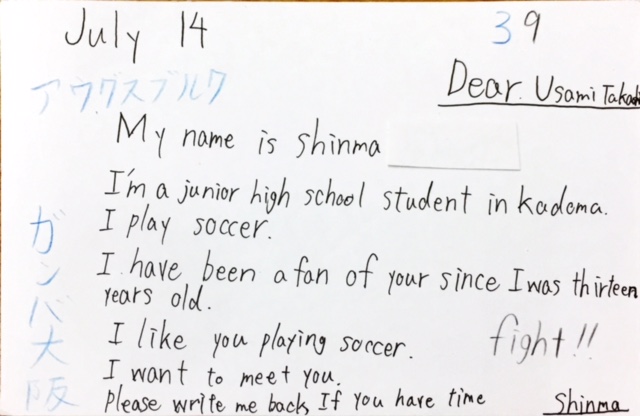 July 14
39
アウグスブルク
Dear. Usami Takashi
My name is Shinma
I'm a junior high school student in kadoma.
I play soccer.
I have been a fan of your since I was thirteen
years old.
I like you playing soccer.
fight!!
I want to meet you.
Please write me back, If you have time
Shinma
ガンバ大阪